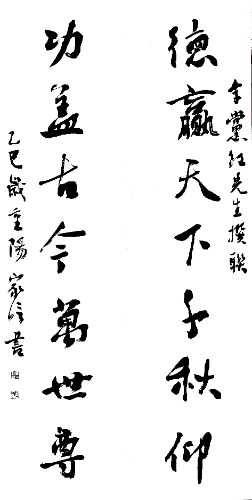 李黨紅先生撰聯
德贏天下千秋仰
功蓋古今萬世尊
乙巳歲重陽 家信書